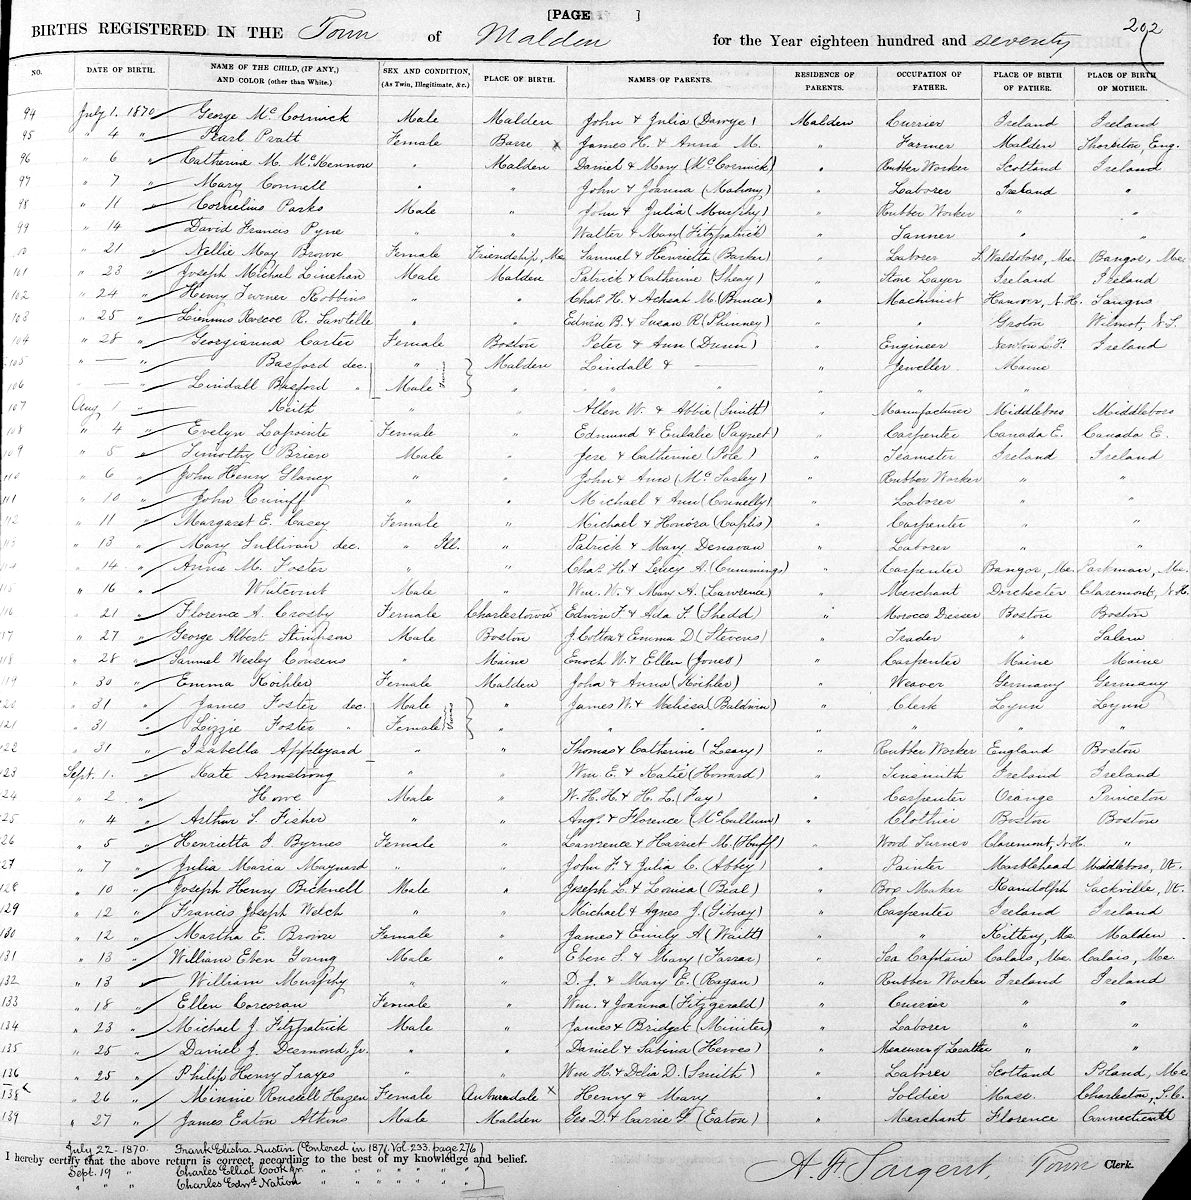 [PAGE ]
202
BIRTHS REGISTERED IN THE Town of Malden for the Year eighteen hundred and seventy
NO. DATE OF BIRTH. NAME OF THE CHILD, (IF ANY,) AND COLOR (other than White.) SEX AND CONDITION, (As Twin, Illegitimate, &c.) PLACE OF BIRTH. NAMES OF PARENTS. RESIDENCE OF PARENTS. OCCUPATION OF FATHER. PLACE OF BIRTH OF FATHER. PLACE OF BIRTH OF MOTHER.
94 July 1. 1870 George McCormick Male Malden John & Julia Malden Currier Ireland Ireland
95 " 4 " Pearl Pratt Female Barre x James H. & Anna M. " Farmer Malden Thornton, Eng.
96 " 6 " Catherine M. McKennon " Malden Daniel & Mary (McCormick) " Rubber Worker Scotland Ireland
97 " 7 " Mary Connell " " John & Joanna (Mahony) " Laborer Ireland "
98 " 11 " Cornelius Parks Male " John & Julia (Murphy) " Rubber Worker " "
99 " 14 " David Francis Pyne " " Walter & Mary (Fitzpatrick) " Tanner " "
" 21 " Nellie May Brown Female Friendship, Me Samuel & Henrietta (Barker) " Laborer Waldoboro, Me. Bangor, Me.
101 " 23 " Joseph Michael Linehan Male Malden Patrick & Catherine (Sheay) " Stone Layer Ireland Ireland
102 " 24 " Henry Turner Robbins " " Chas. H. & Achsah M. (Bunce) " Machinist Hanover, N.H. Saugus
103 " 25 " Roscoe R. Sawtelle " " Edwin B. & Susan R. (Phinney) " " Groton Wilmot, N.S.
104 " 28 " Georgianna Carter Female Boston Peter & Ann (Dunn) " Engineer Ireland
105 " — " Basford dec. " Twins Malden Lindall & — " Jeweller Maine
106 " — " Lindall Basford " Male " " " " " " "
107 Aug. 1 " Keith " " Allen W. & Abbie (Smith) " Manufacturer Middleboro Middleboro
108 " 4 " Evelyn Lapointe Female " Edmund & Eulalie (Paquet) " Carpenter Canada E. Canada E.
109 " 5 " Timothy O'Brien Male " Jere & Catherine (Pole) " Teamster Ireland Ireland
110 " 6 " John Henry Glancy " " John & Ann " Rubber Worker " "
111 " 10 " John Cunniff " " Michael & Ann (Connelly) " Laborer " "
112 " 11 " Margaret E. Casey Female " Michael & Honora (Caplis) " Carpenter " "
113 " 13 " Mary Sullivan dec. " Ill. " Patrick & Mary Denavan " Laborer " "
114 " 14 " Anna M. Foster " " Chas. H. & Lucy A. (Cummings) " Carpenter Bangor, Me. Parkman, Me.
115 " 16 " Whitcomb Male " Wm. W. & Mary A. (Lawrence) " Merchant Dorchester Claremont, N.H.
116 " 21 " Florence A. Crosby Female Charlestown x Edwin F. & Ada F. (Shedd) " Morocco Dresser Boston Boston
117 " 27 " George Albert Stimpson Male Boston J. Cotton & Emma D. (Stevens) " Trader " Salem
118 " 28 " Samuel Wesley Cousens " Maine Enoch W. & Ellen (Jones) " Carpenter Maine Maine
119 " 30 " Emma Koehler Female Malden John & Anna (Koehler) " Weaver Germany Germany
120 " 31 " James Foster dec. Male Twins " James W. & Melissa (Baldwin) " Clerk Lynn Lynn
121 " 31 " Lizzie Foster " Female " " " " " " "
122 " 31 " Isabella Appleyard " " Thomas & Catherine (Leary) " Rubber Worker England Boston
123 Sept. 1. " Kate Armstrong " " Wm. E. & Katie (Howard) " Tinsmith Ireland Ireland
124 " 2 " Howe Male " W. H. H. & H. L. (Fay) " Carpenter Orange Princeton
125 " 4 " Arthur S. Fisher " " Augs. & Florence (McCullum) " Clothier Boston Boston
126 " 5 " Henrietta J. Byrnes Female " Lawrence & Harriet M. (Huff) " Wood Turner Claremont, N.H. "
127 " 7 " Julia Maria Maynard " " John F. & Julia C. (Abbey) " Painter Marblehead Middleboro, Vt.
128 " 10 " Joseph Henry Bicknell Male " Joseph L. & Louisa (Beal) " Box Maker Randolph Sackville, Vt.
129 " 12 " Francis Joseph Welch " " Michael & Agnes J. (Gibney) " Carpenter Ireland Ireland
130 " 12 " Martha E. Brown Female " James & Emily A. (Waitt) " " Kittery, Me. Malden
131 " 13 " William Eben Young Male " Eben S. & Mary (Farrar) " Sea Captain Calais, Me. Calais, Me.
132 " 13 " William Murphy " " D. J. & Mary E. (Ragan) " Rubber Worker Ireland Ireland
133 " 18 " Ellen Corcoran Female " Wm. & Joanna (Fitzgerald) " Currier " "
134 " 23 " Michael J. Fitzpatrick Male " James & Bridget (Minister) " Laborer " "
135 " 25 " Daniel J. Desmond, Jr. " " Daniel & Sabina (Hewes) " Measurer of Leather " "
136 " 25 " Philip Henry Trayes " " Wm H. & Delia D. (Smith) " Laborer Scotland Poland, Me.
138 x " 26 " Minnie Russell Hazen Female Auburndale x Henry & Mary " Soldier Mass. Charleston, S.C.
139 " 27 " James Eaton Atkins Male Malden Geo. D. & Carrie G. (Eaton) " Merchant Florence Connecticutt
July 22 - 1870. Frank Elisha Austin (Entered in 1871. Vol. 233. page 276)
I hereby certify that the above return is correct, according to the best of my knowledge and belief.
Sept. 19 " Charles Elliot Cook Jr. " " " " "
" " " Charles Edwd. Nation " " " " "
A. F. Sargent, Town Clerk.